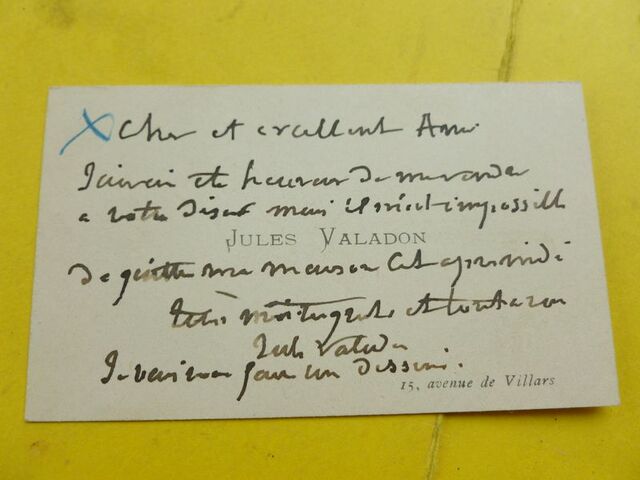 Cher et excellent Ami
J'aurais été heureux de me rendre
a votre désir mais il m'est impossible
JULES VALADON
de quitter ma maison cet après midi
et tout a vous
Jules Valadon
Je pour un dessin.
15, avenue de Villars